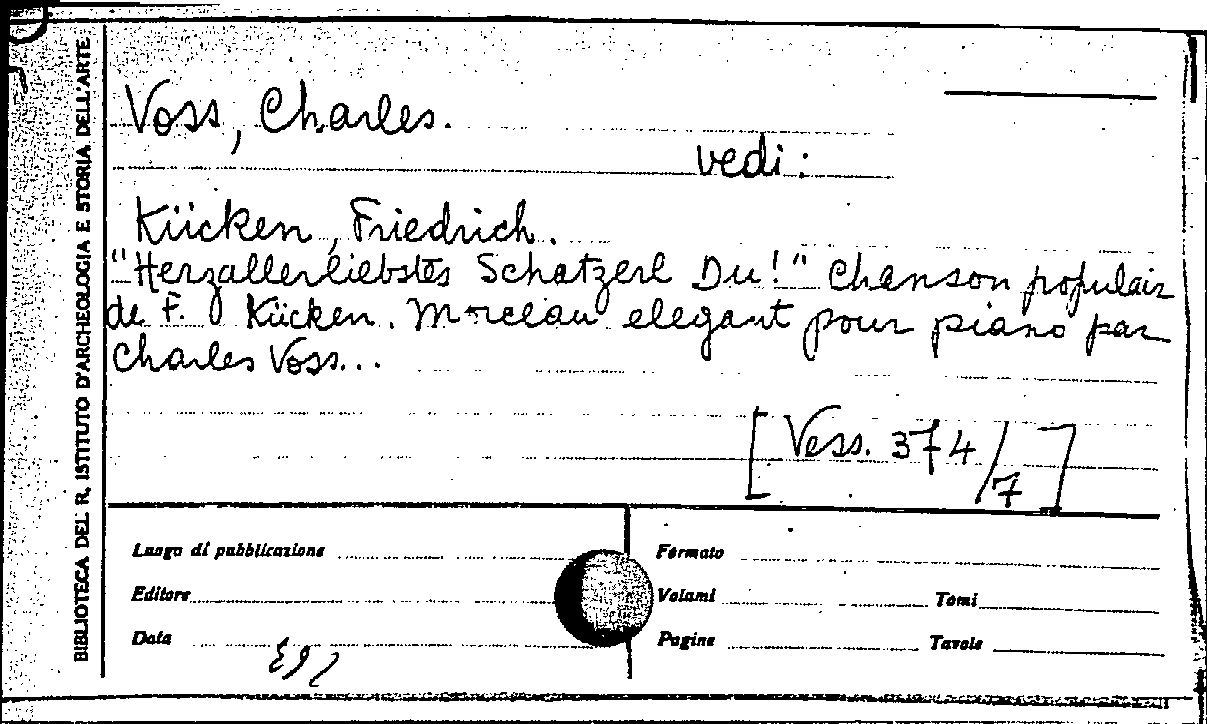 BIBLIOTECA DEL R. ISTITUTO D'ARCHEOLOGIA E STORIA DELL'ARTE
Voss, Charles.
vedi:
Kücken, Friedrich.
"Herzallerliebstes Schatzerl Du!" Chanson populair
de F. Kücken. Morceau elegant pour piano par
Charles Voss...
[Vess. 374/7]
Luogo di pubblicazione Formato
Editore Volumi Tomi
Data Pagine Tavole